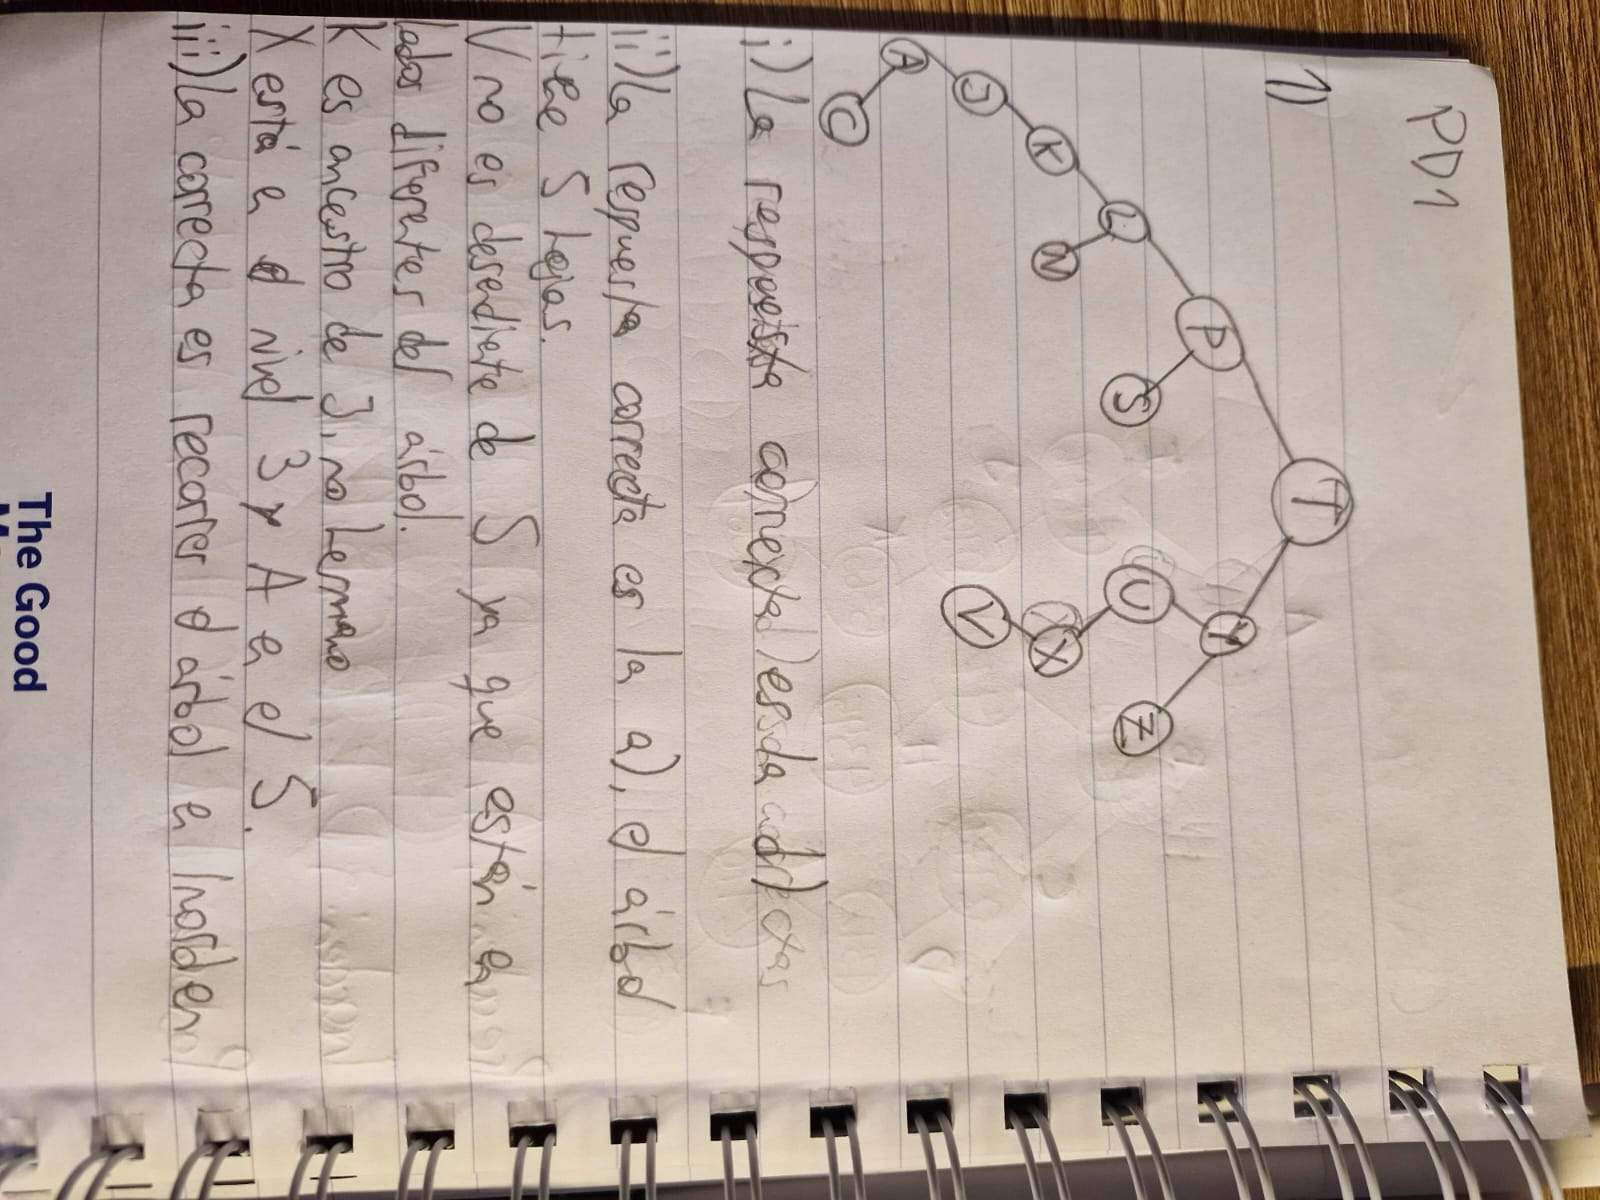 PD1
1)
T
P
Y
L
S
U
Z
K
N
X
J
V
A
C
i) La respuesta correcta es la d)
ii) La respuesta correcta es la a), el árbol
tiene 5 hojas.
V no es desendiente de S ya que están en
lados diferentes del árbol.
K es ancestro de J, no hermano
X está en el nivel 3 y A en el 5.
iii) La correcta es recorrer el árbol en Inorden
The Good